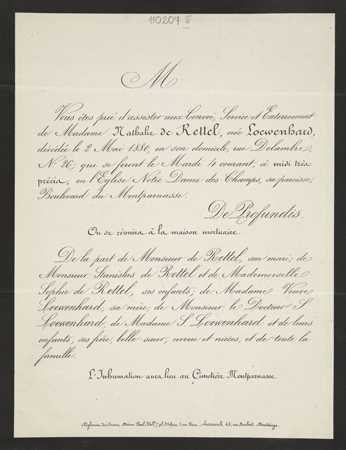 110207 III
M
Vous êtes prié d'assister aux Convoi, Service et Enterrement
de Madame Nathalie de Rettel, née Loewenhard,
décédée le 2 Mai 1880, en son domicile, rue Delambre,
N° 26; qui se feront le Mardi 4 courant, à midi très
précis, en l'Eglise Notre Dame des Champs, sa paroisse,
Boulevard du Montparnasse.
De Profundis.
On se réunira à la maison mortuaire.
De la part de Monsieur de Rettel, son mari; de
Monsieur Stanislas de Rettel et de Mademoiselle
Sophie de Rettel, ses enfants; de Madame Veuve
Loewenhard, sa mère; de Monsieur le Docteur S.
Loewenhard, de Madame S. Loewenhard et de leurs
enfants, ses frère, belle sœur, neveu et nièces, et de toute la
famille.
L'Inhumation aura lieu au Cimetière Montparnasse.